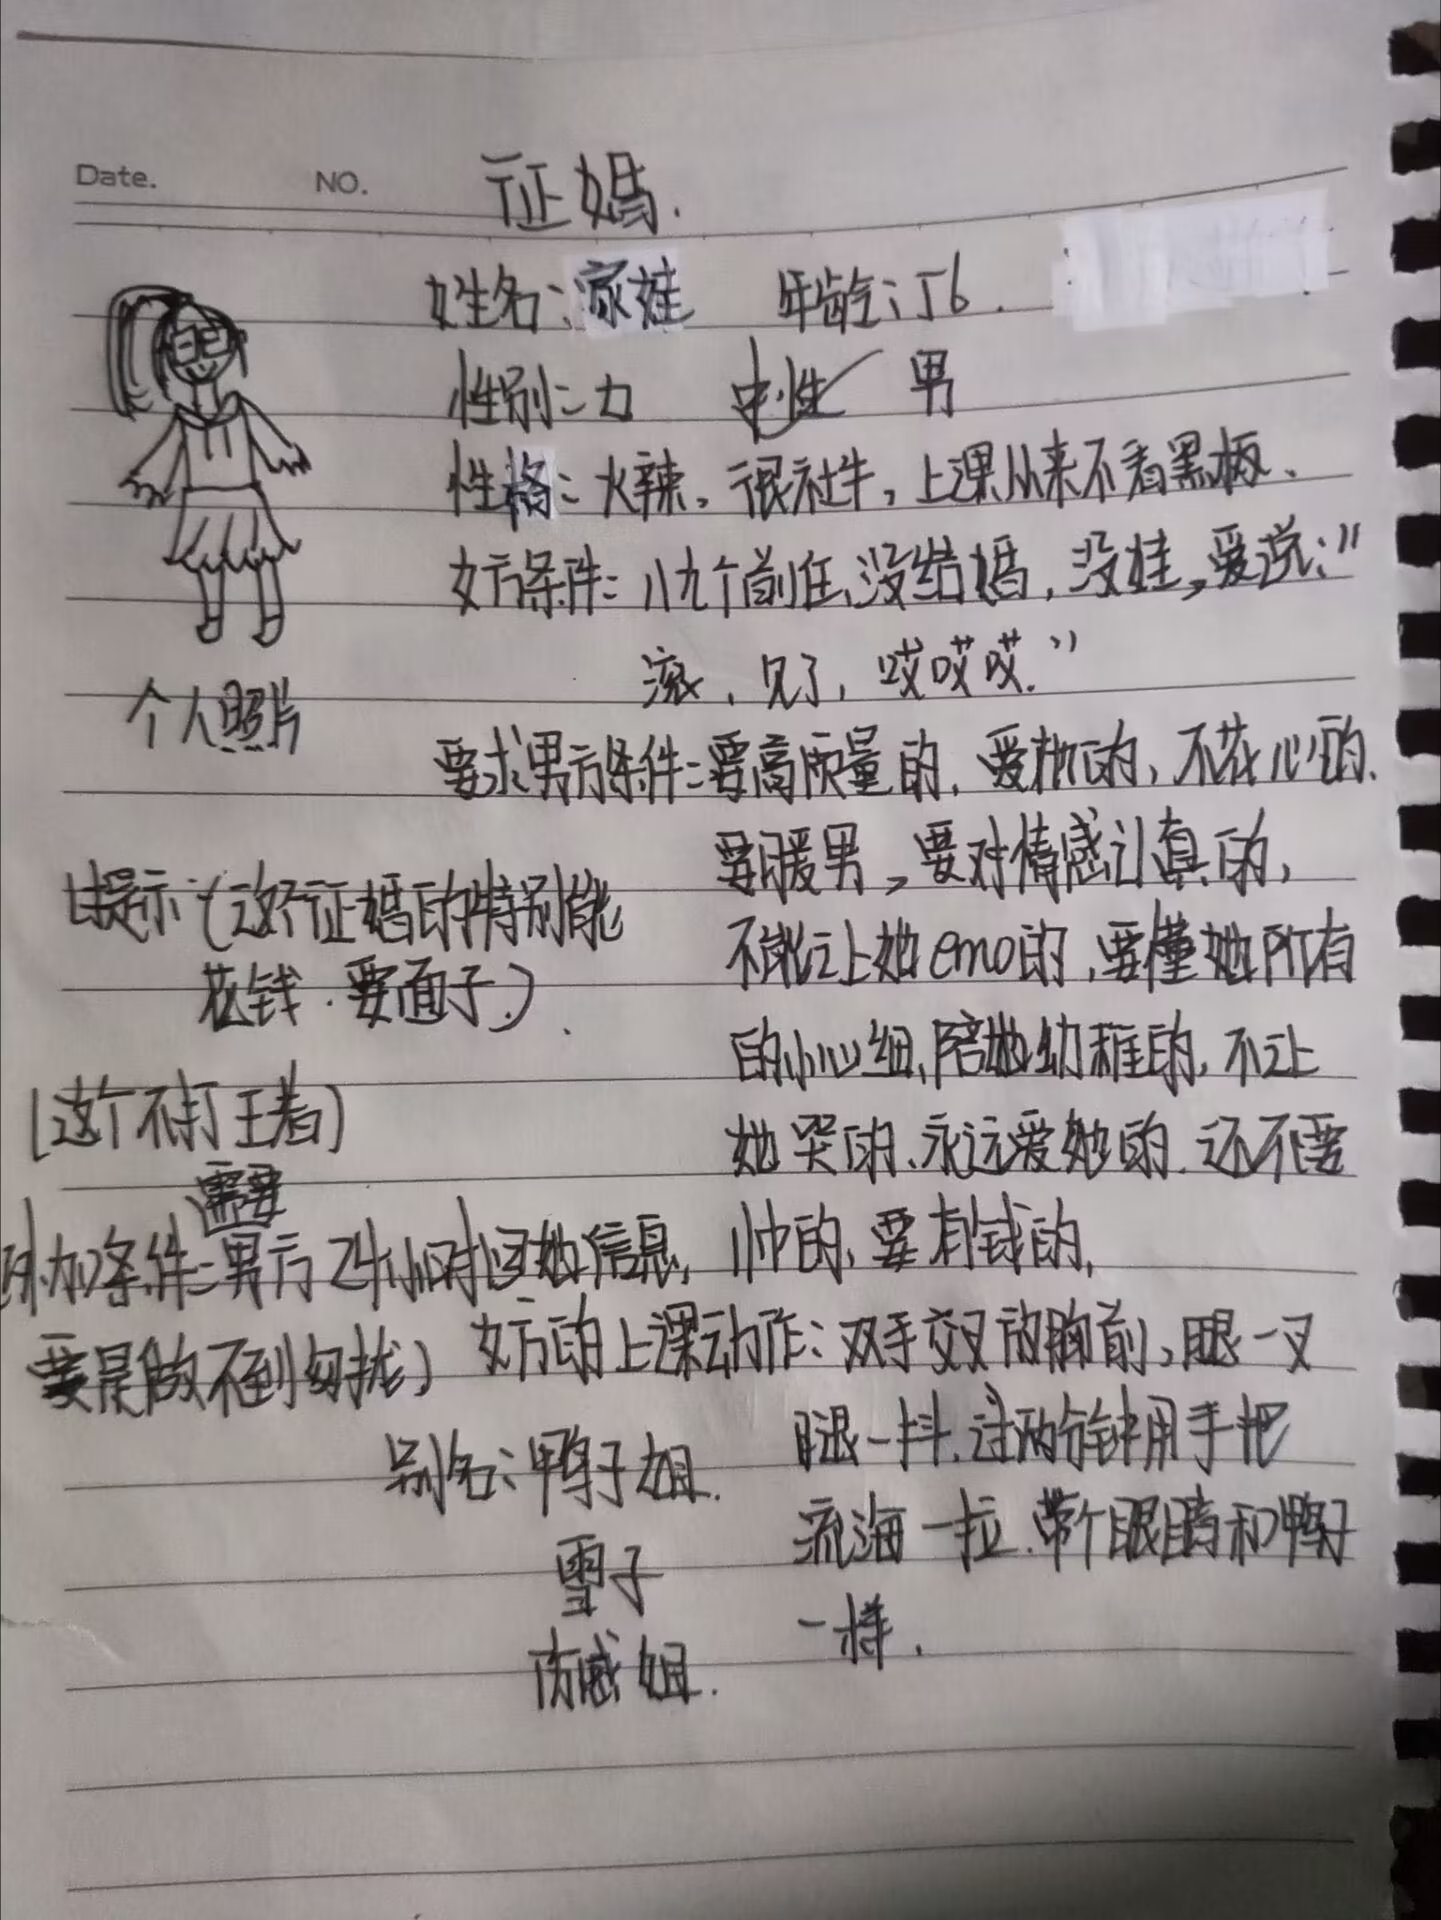 Date.    NO.    证婚.
姓名:家娃    年龄:16.
性别:力    中性✓    男
性格:火辣。很社牛,上课从来不看黑板、
女方条件:八九个前任、没结婚,没娃,爱说:"
滚、见了,哎哎哎."
个人照片
要求男方条件:要高质量的、爱她的,不花心的、
要暖男,要对情感认真的,
不能让她emo的,要懂她所有
的小心细、陪她幼稚的,不让
她哭的、永远爱她的.还不要
帅的、要有钱的,
提示:(这个证婚的特别能
花钱.要面子.)
(这个不打王者)
需要
外加条件:男方24小时回她信息,
要是做不到勿扰)
女方的上课动作:双手交叉放胸前,腿一叉
腿一抖、过两分钟用手把
流海一拉.带个眼睛和鸭子
一样.
别名:鸭子姐.
雪子
姐.